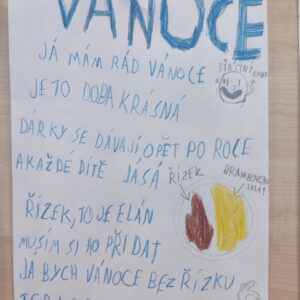 VÁNOCE
ŠŤASTNÝ
JÁ MÁM RÁD VÁNOCE
JE TO DOBA KRÁSNÁ
DÁRKY SE DÁVAJÍ OPĚT PO ROCE
A KAŽDÉ DÍTĚ JÁSÁ
ŘÍZEK
ŘÍZEK, TO JE ELÁN
MUSÍM SI HO PŘIDAT
JÁ BYCH VÁNOCE BEZ ŘÍZKU